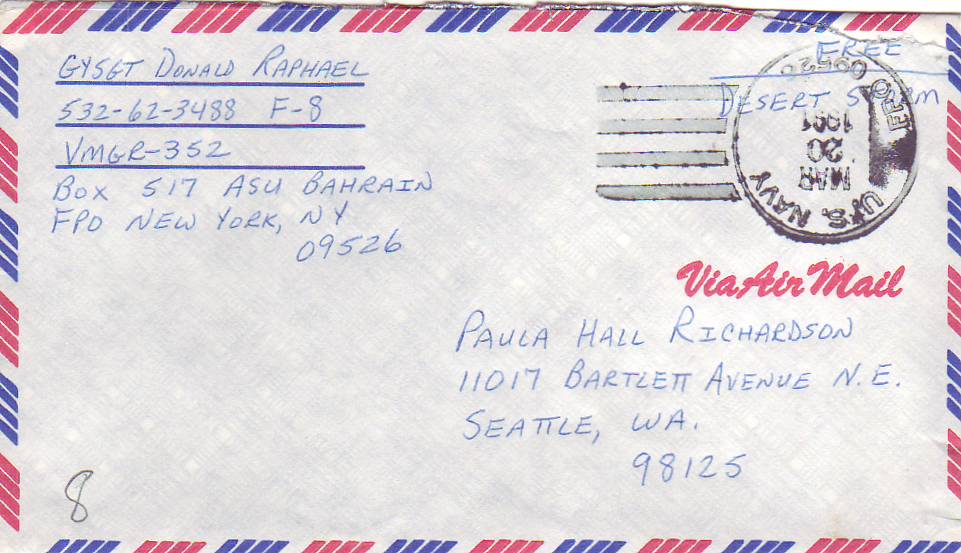 GYSGT DONALD RAPHAEL
532-62-3488 F-8
VMGR-352
BOX 517 ASU BAHRAIN
FPO NEW YORK, NY
09526
FREE
DESERT STORM
FPO 09526
MAR
20
1991
U.S. NAVY
Via Air Mail
PAULA HALL RICHARDSON
11017 BARTLETT AVENUE N.E.
SEATTLE, WA.
98125
8